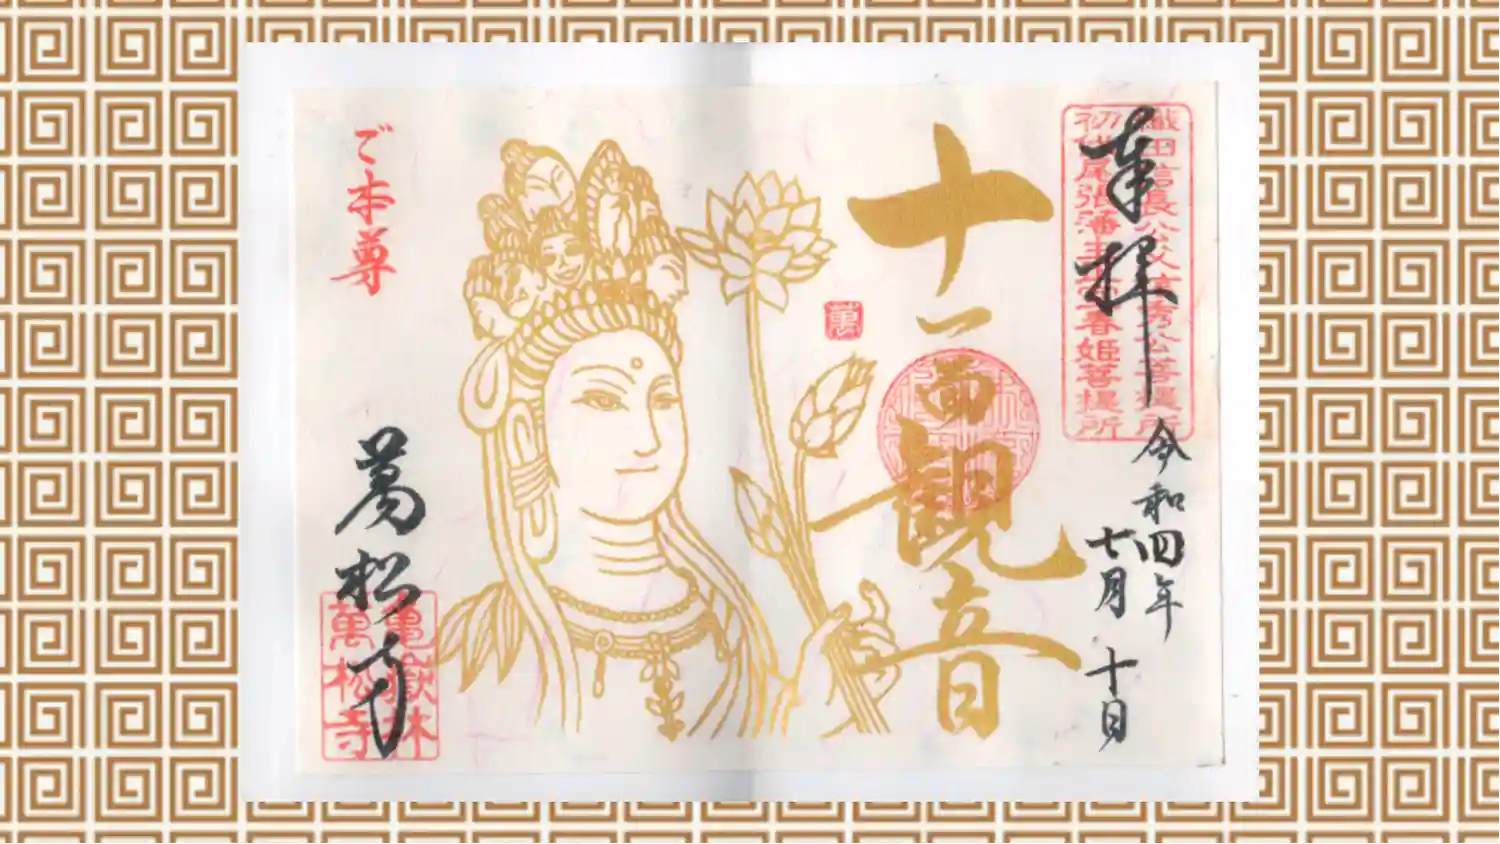 奉拝
織田信長公父信秀公菩提所
初代尾張藩主正室春姫菩提所
令和四年
七月十日
十一面観音
萬
ご本尊
萬松寺
亀嶽林
萬松寺